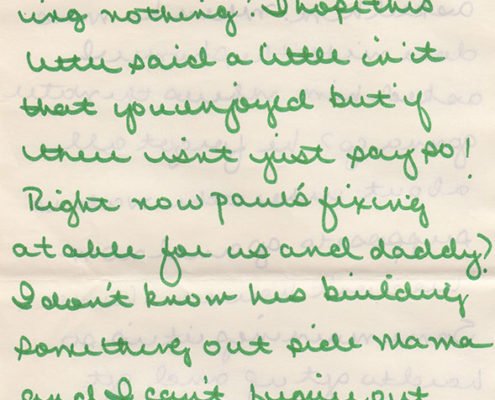 ing nothing. I hope this
little said a little in it
that you enjoyed but if
there isn't just say so!
Right now paul's fixing
a table for us and daddy?
I don't know hes building
something out side mama
and I can't figure out